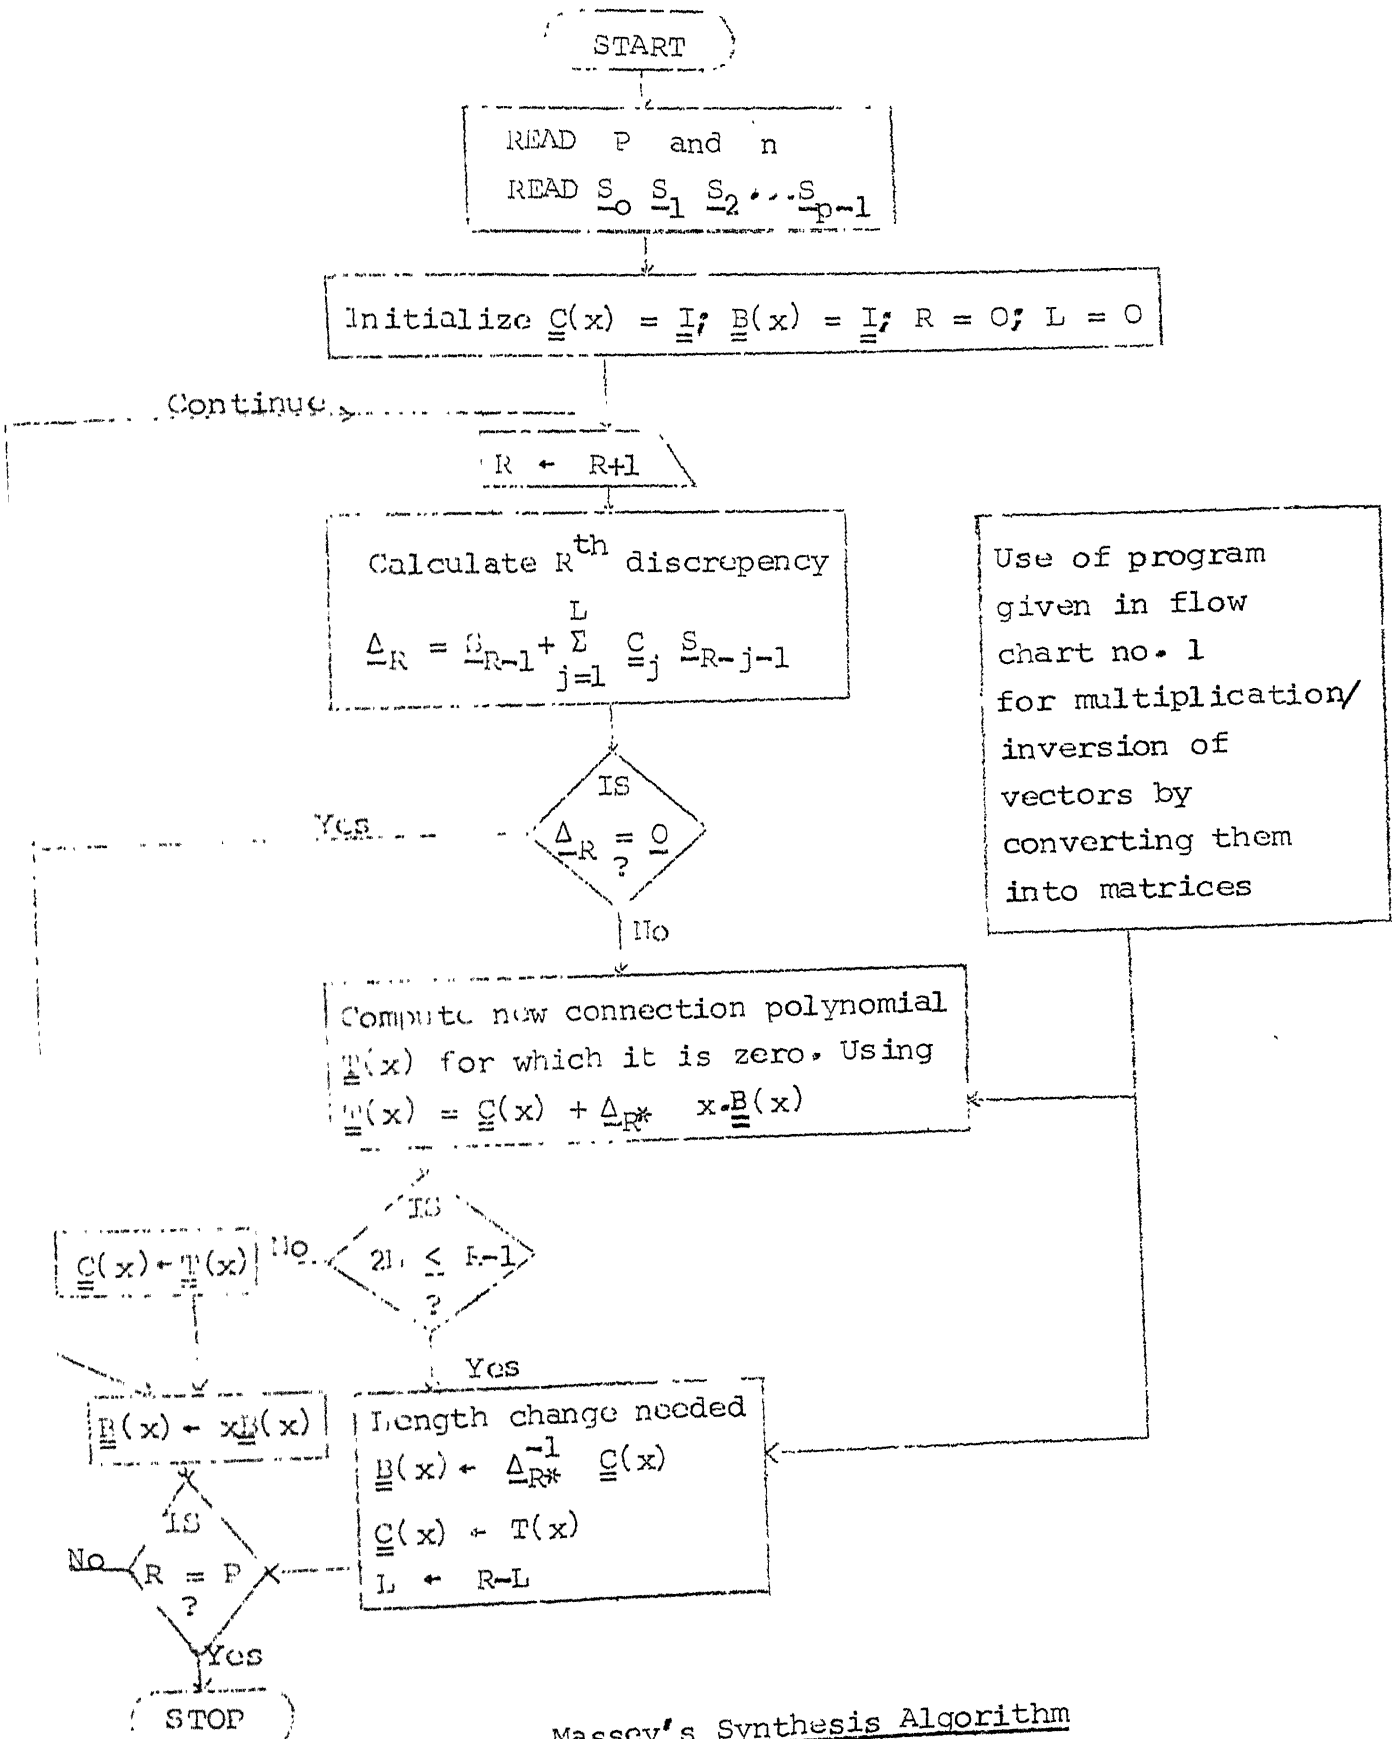 START
READ P and n
READ S_0 S_1 S_2 ... S_p-1
Initialize C(x) = I; B(x) = I; R = 0; L = 0
Continue
R ← R+1
Calculate R^th discrepency
Δ_R = S_R-1 + Σ_{j=1}^{L} C_j S_R-j-1
Use of program
given in flow
chart no. 1
for multiplication/
inversion of
vectors by
converting them
into matrices
IS
Δ_R = 0
?
Yes
No
Compute new connection polynomial
T(x) for which it is zero. Using
T(x) = C(x) + Δ_R* x.B(x)
IS
2L ≤ R-1
?
No
C(x) ← T(x)
Yes
B(x) ← xB(x)
Length change needed
B(x) ← Δ_R*^-1 C(x)
C(x) ← T(x)
L ← R-L
IS
R = P
?
No
Yes
STOP
Massey's Synthesis Algorithm